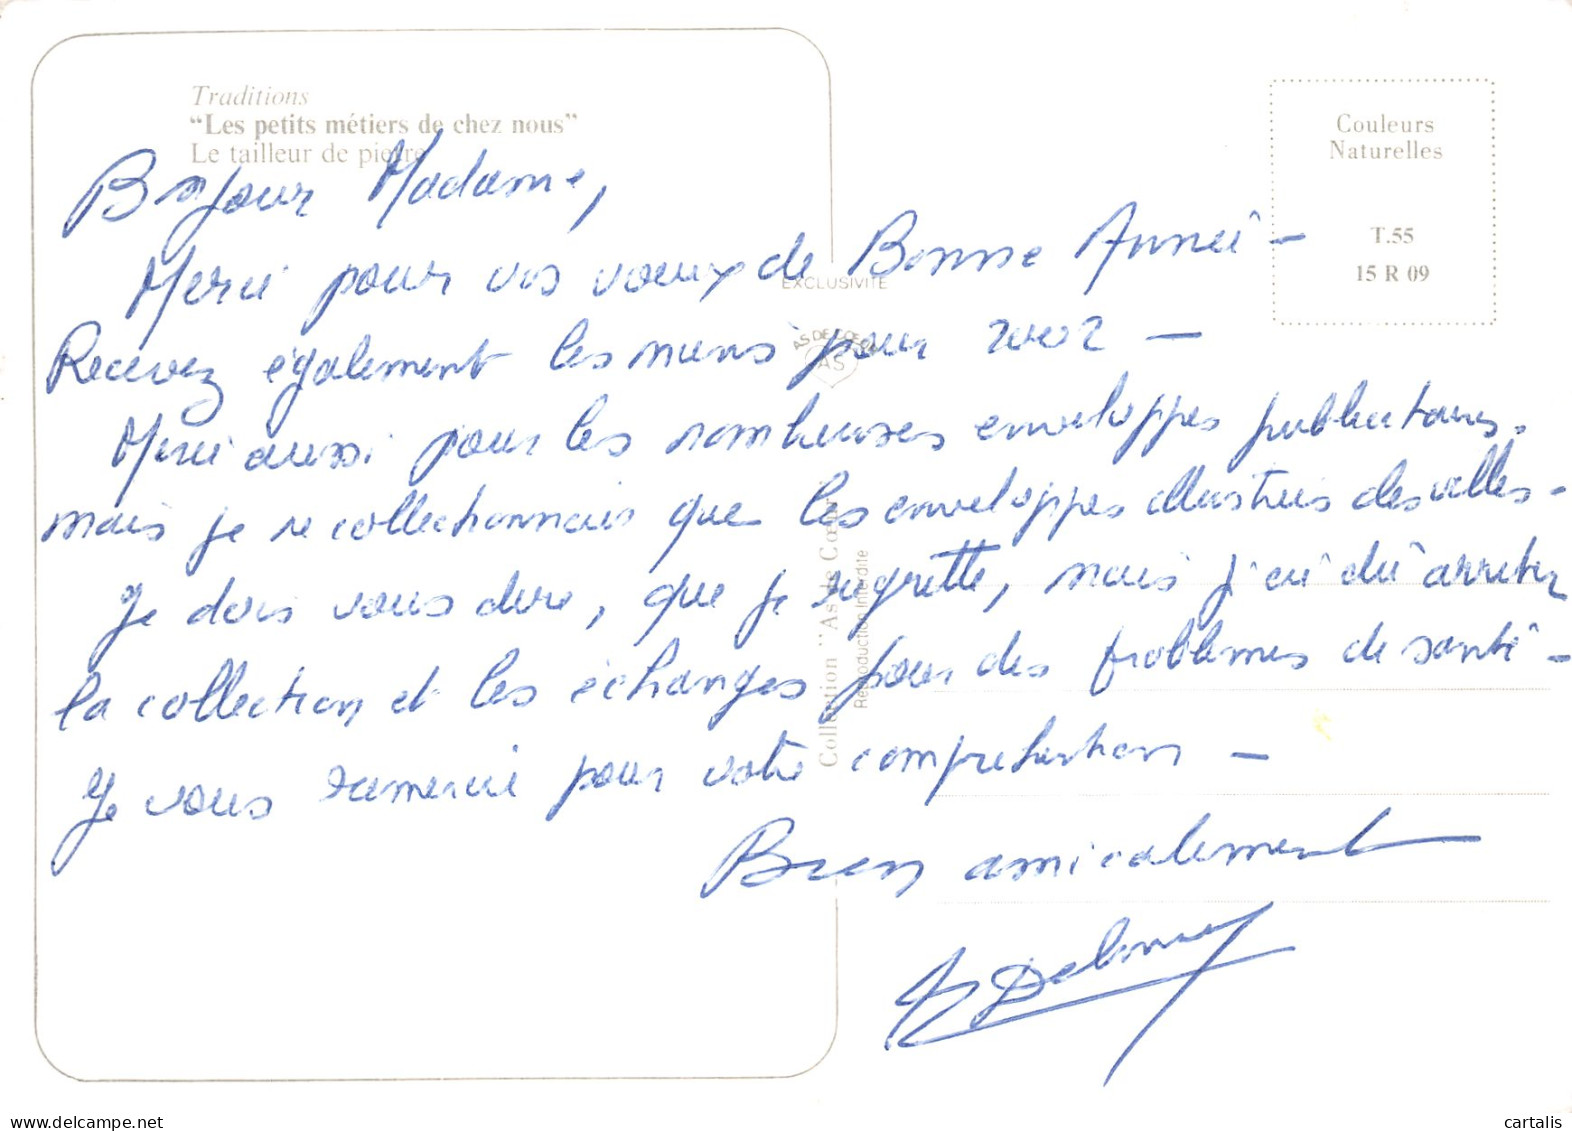 Traditions
“Les petits métiers de chez nous”
Le tailleur de pierre
Couleurs
Naturelles
T.55
15 R 09
EXCLUSIVITÉ
AS DE CŒUR
AS
Collection "As de Cœur"
Reproduction Interdite
Bonjour Madame,
Merci pour vos voeux de Bonne Année -
Recevez également les miens pour 2002 -
Merci aussi pour les nombreuses enveloppes publicitaires.
mais je ne collectionnais que les enveloppes illustrées des villes -
Je dois vous dire, que je regrette, mais j'ai dû arrêter
la collection et les échanges pour des problèmes de santé -
Je vous remercie pour votre compréhension -
Bien amicalement
cartalis
delcampe.net